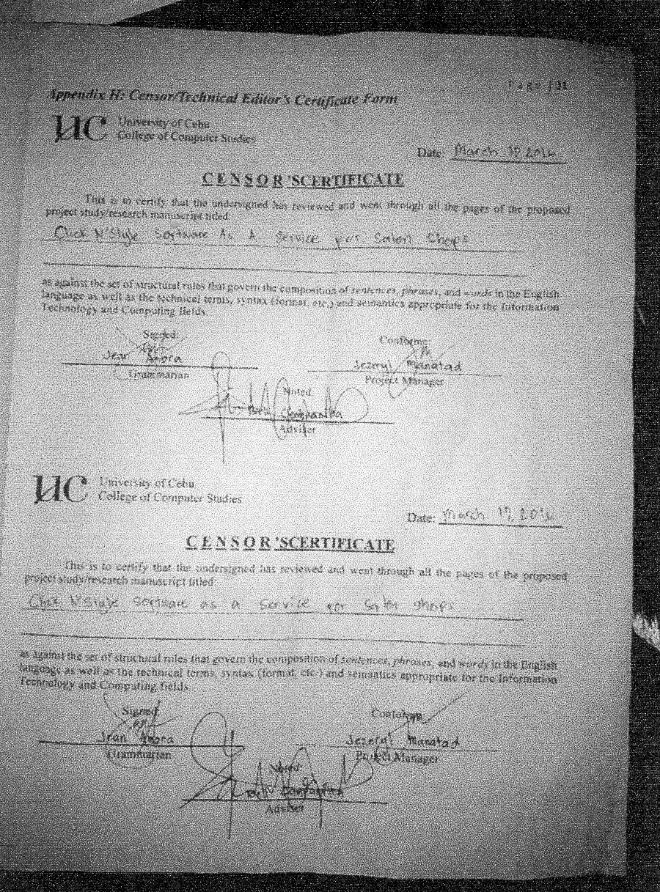 Page | 31
Appendix H: Censor/Technical Editor's Certificate Form
UC University of Cebu
College of Computer Studies
Date: March
CENSOR'SCERTIFICATE
This is to certify that the undersigned has reviewed and went through all the pages of the proposed
project study/research manuscript titled
Click N'Style Software As A Service for Salon Shops
as against the set of structural rules that govern the composition of sentences, phrases, and words in the English
language as well as the technical terms, syntax (format, etc.) and semantics appropriate for the Information
Technology and Computing fields.
Signed: Conforme:
Jean Jezeryl Manatad
Grammarian Project Manager
Noted
Adviser
UC University of Cebu
College of Computer Studies
Date: March 17,
CENSOR'SCERTIFICATE
This is to certify that the undersigned has reviewed and went through all the pages of the proposed
project study/research manuscript titled
Click N'Style Software as a Service for Salon shops
as against the set of structural rules that govern the composition of sentences, phrases, and words in the English
language as well as the technical terms, syntax (format, etc.) and semantics appropriate for the Information
Technology and Computing fields.
Signed Conforme
Jean Jezeryl Manatad
Grammarian Project Manager
Noted
Adviser